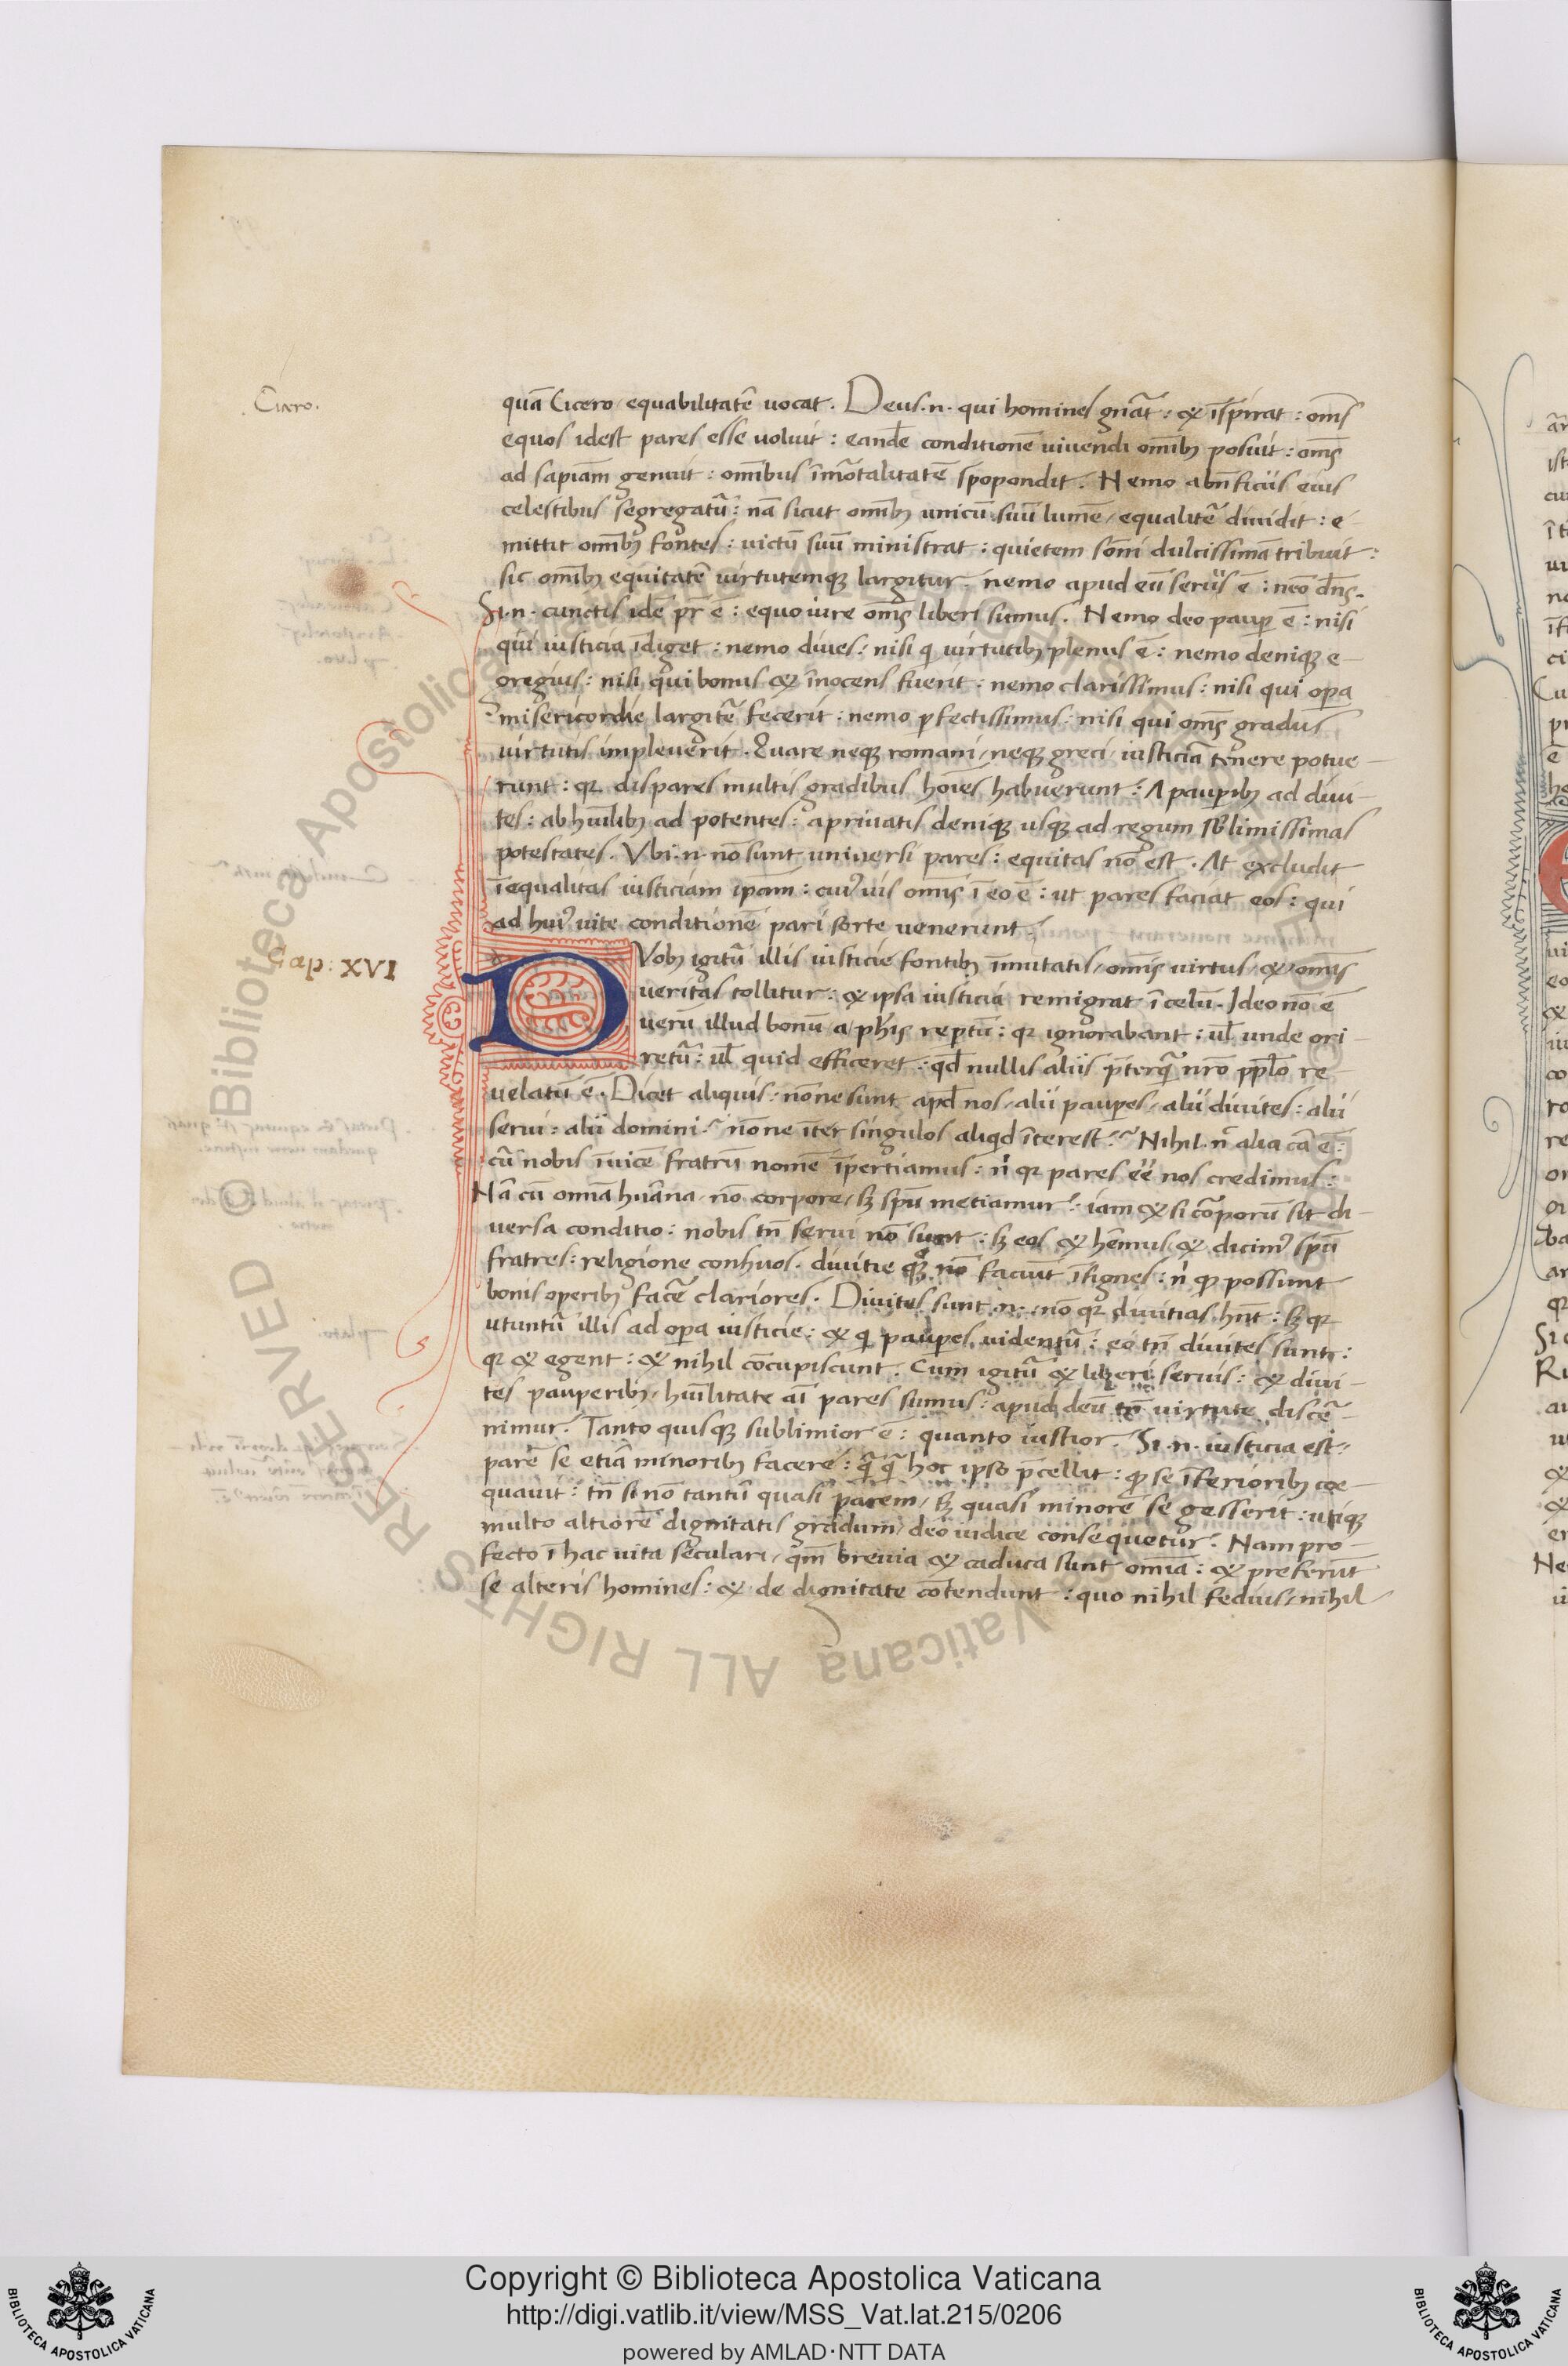 Cicero.
quā Cicero equabilitatē uocat. Deus .n. qui homines gn̄at: & īspirat: om̄s
equos idest pares esse uoluit: eandē conditionē uiuendi om̄ibꝫ posuit: om̄s
ad sapiam̄ genuit: om̄ibus īmōtalitatē spopondit. Nemo a bn̄ficiis eius
celestibus segregatū: nā sicut om̄ibꝫ unicū suū lumē equalitē diuidit: e
mittit om̄ibꝫ fontes: uictū suū ministrat: quietem som̄i dulcissimā tribuit:
sic om̄ibꝫ equitatē uirtutemqꝫ largitur. nemo apud eū seruus ē: nēo dn̄s.
Si .n. cunctis idē pr̄ ē: equo iure om̄s liberi sumus. Nemo deo paup̄ ē: nisi
qui iusticia īdiget: nemo diues: nisi q uirtutibꝫ plenus ē: nemo deniqꝫ e
gregius: nisi qui bonus & īnocens fuerit: nemo clarissimus: nisi qui op̄a
misericordie largitē fecerit: nemo ꝑfectissimus: nisi qui om̄s gradus
uirtutis impleuerit. Quare neqꝫ romani neqꝫ greci iusticiā tenere potue
runt: qꝛ dispares multis gradibus hoīes habuerunt: A paupibꝫ ad diui
tes: ab huīlibꝫ ad potentes: a priuatis deniqꝫ usqꝫ ad regum sublimissimas
potestates. Vbi .n. nō sunt uniuersi pares: equitas nō est. At excludit
īequalitas iusticiam ip̄am: cuiꝰ uis om̄is ī eo ē: ut pares faciat eos: qui
ad huiꝰ uite conditionē pari sorte uenerunt.
Cap: XVI
DVobꝫ igitū illis iusticie fontibꝫ īmutatis om̄is uirtus & om̄is
ueritas tollitur: & ipsa iusticia remigrat ī celū. Ideo nō ē
uerū illud bonū a ph̄is rep̄tū: qꝛ ignorabant: ul̄ unde ori
retū: ul̄ quid efficeret: qd̄ nullis aliis p̄terqā nr̄o ppl̄o re
uelatum ē. Dicet aliquis: nōne sunt apd̄ nos alii paup̄es alii diuites: alii
serui: alii domini: nōne īter singulos aliqd īterest? Nihil. n̄ alia cā ē:
cū nobis īuicē fratrū nomē īpertiamus: nˡ qꝛ pares eē nos credimus:
Nā cū om̄ia huāna nō corpore sꝫ sp̄u metiamur: iam & si corporū sit di
uersa conditio: nobis tn̄ serui nō sunt: sꝫ eos & hēmus & dicimꝰ sp̄u
fratres: religione conseruos. diuitie qꝫ nō faciūt īsignes: nˡ qꝫ possunt
bonis operibꝫ facē clariores. Diuites sunt .n. nō qꝛ diuitias hn̄t: sꝫ qꝛ
utuntū illis ad op̄a iusticie: & q paup̄es uidentū: eo tn̄ diuites sunt:
qꝛ & egent: & nihil cōcupiscunt. Cum igitū & liberi seruis: & diui
tes pauperibꝫ huīlitate aī pares sumus: apud deū tn̄ uirtute discē
nimur. Tanto quisqꝫ sublimior ē: quanto iustior. Si .n. iusticia est
parē se etiā minoribꝫ facere: qꝫ qꝫ hoc ipso p̄cellit: qꝫ se īferioribꝫ coe
quauit: tn̄ si nō tantū quasi parem sꝫ quasi minorē se gesserit: utiqꝫ
multo altiorē dignitatis gradum deo iudice consequetur. Nam pro
fecto ī hac uita seculari qm̄ breuia & caduca sunt om̄ia: & preferūt
se alteris homines: & de dignitate cōtendunt: quo nihil fedius nihil
Copyright © Biblioteca Apostolica Vaticana
http://digi.vatlib.it/view/MSS_Vat.lat.215/0206
powered by AMLAD·NTT DATA
BIBLIOTECA APOSTOLICA VATICANA
BIBLIOTECA APOSTOLICA VATICANA
© Biblioteca Apostolica Vaticana ALL RIGHTS RESERVED